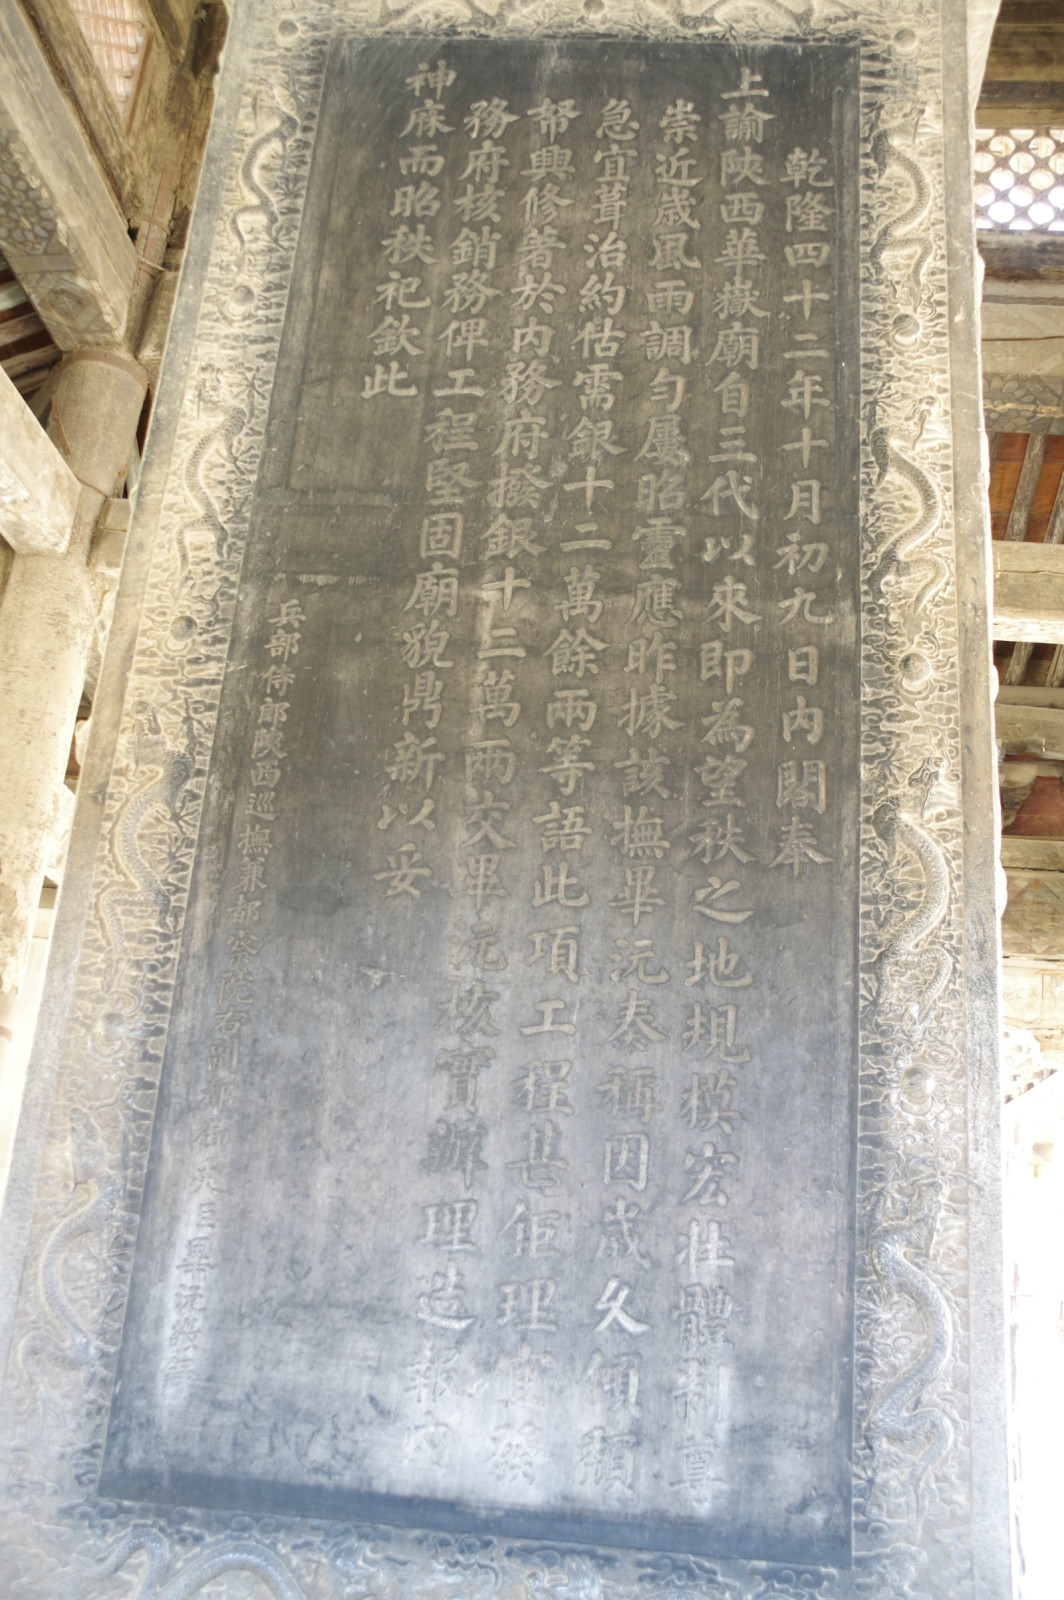 乾隆四十二年十月初九日內閣奉
上諭陝西華嶽廟自三代以來即為望秩之地規模宏壯體制尊
崇近歲風雨調勻屢昭靈應昨據該撫畢沅奏稱因歲久傾頹
急宜葺治約估需銀十二萬餘兩等語此項工程甚鉅理宜發
帑興修著於內務府撥銀十二萬兩交畢沅核實辦理造報內
務府核銷務俾工程堅固廟貌鼎新以妥
神庥而昭秩祀欽此
兵部侍郎陝西巡撫兼都察院右副都御史臣畢沅